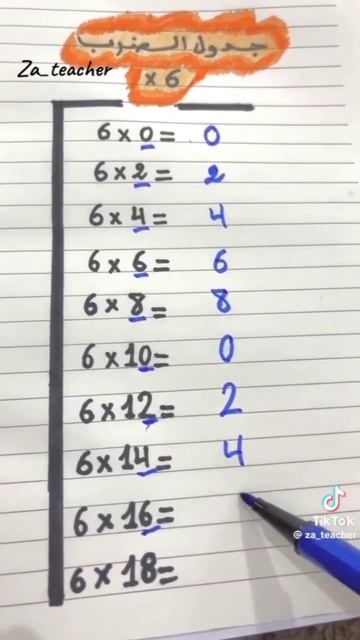 جدول الضرب
Za_teacher
× 6
6 × 0 = 0
6 × 2 = 2
6 × 4 = 4
6 × 6 = 6
6 × 8 = 8
6 × 10 = 0
6 × 12 = 2
6 × 14 = 4
6 × 16 =
6 × 18 =
TikTok
@ za_teacher